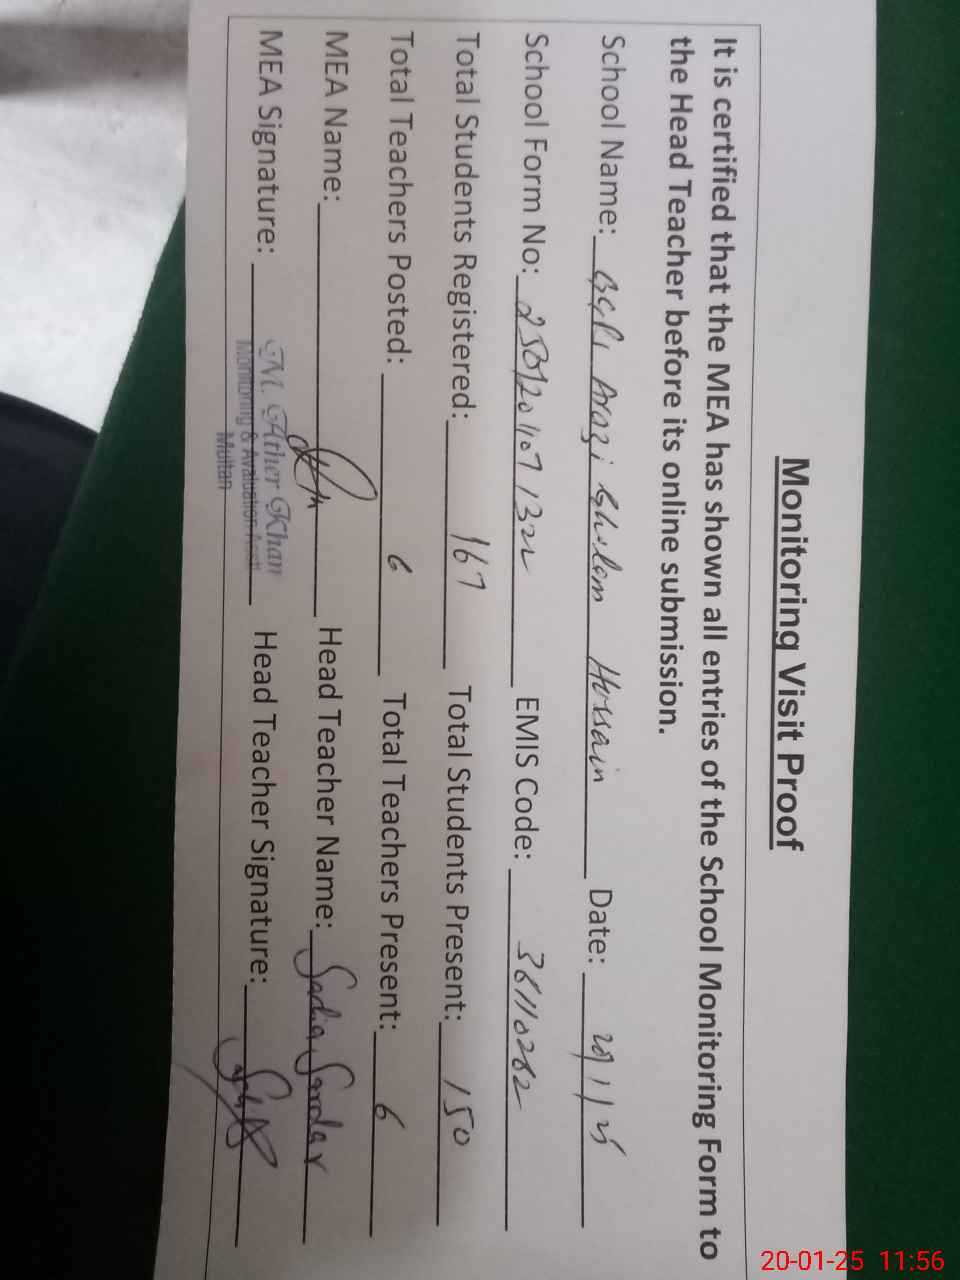 Monitoring Visit Proof
It is certified that the MEA has shown all entries of the School Monitoring Form to
the Head Teacher before its online submission.
School Name: Arazi Ghulam Hussain Date:
School Form No: EMIS Code: 36110262
Total Students Registered: 167 Total Students Present: 150
Total Teachers Posted: 6 Total Teachers Present: 6
MEA Name: Head Teacher Name: Sadia Sardar
MEA Signature: Head Teacher Signature:
M. Ather Khan
Monitoring & Avaluation Asstt
Multan
20-01-25 11:56